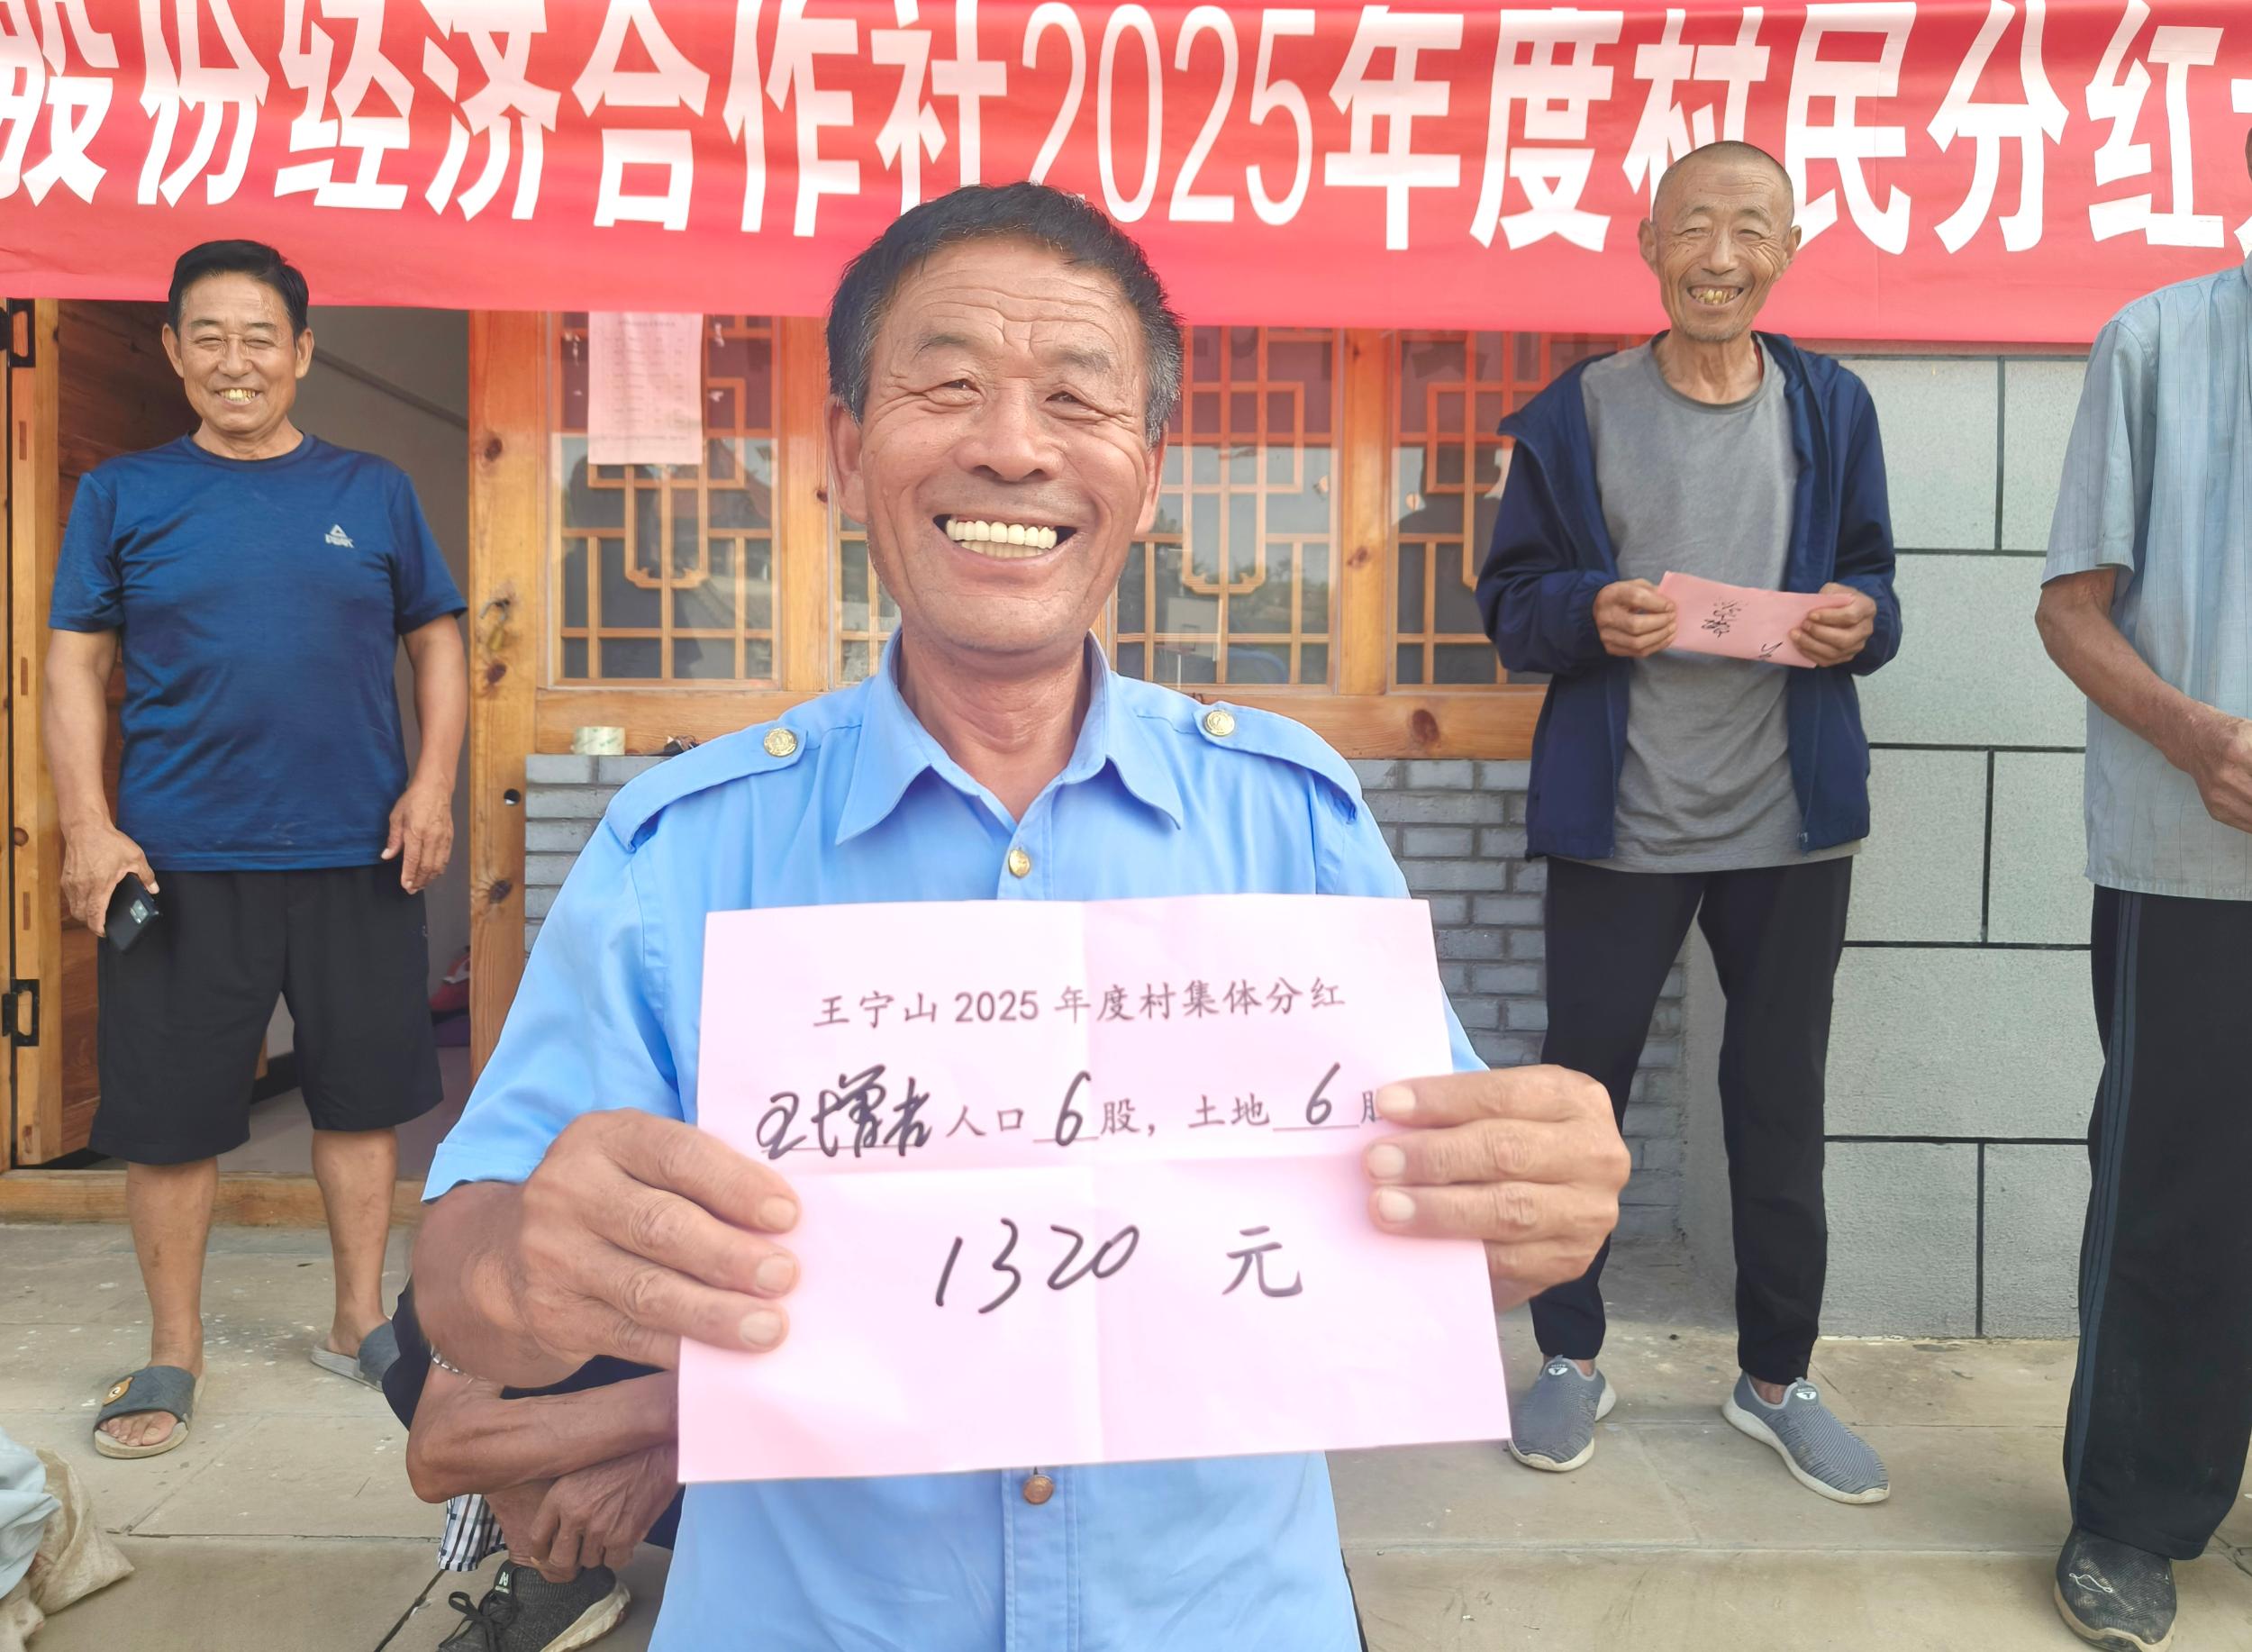 股份经济合作社2025年度村民分红
PEAK
王宁山2025年度村集体分红
王增吉人口6股，土地6股
1320 元